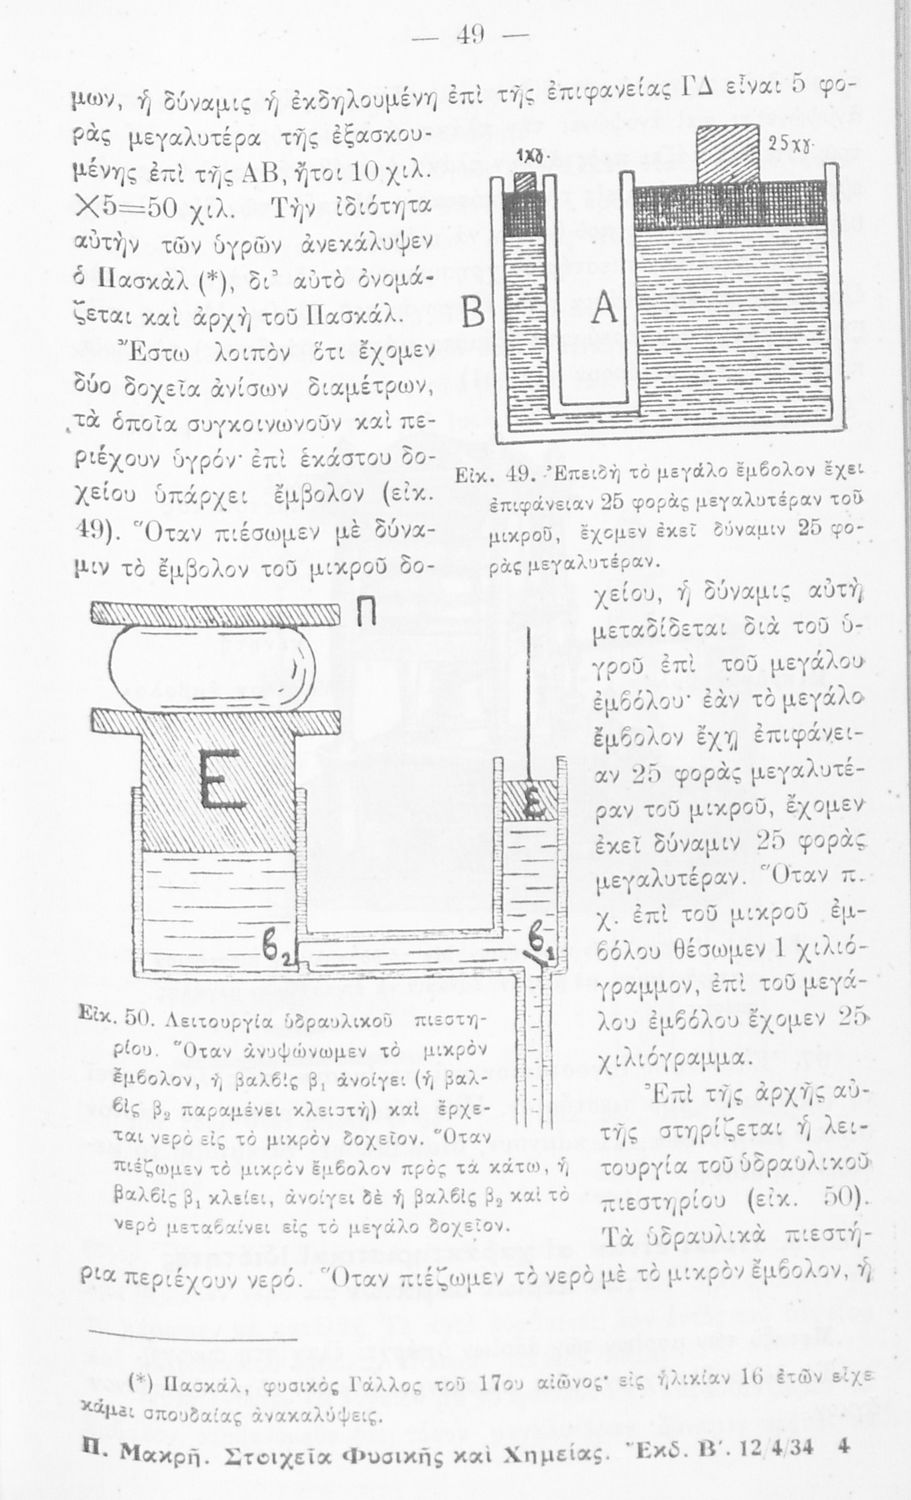 — 49 —
μων, ἡ δύναμις ἡ ἐκδηλουμένη ἐπὶ τῆς ἐπιφανείας ΓΔ εἶναι 5 φο-
ρὰς μεγαλυτέρα τῆς ἐξασκου-
μένης ἐπὶ τῆς ΑΒ, ἤτοι 10 χιλ.
Χ5=50 χιλ. Τὴν ἰδιότητα
αὐτὴν τῶν ὑγρῶν ἀνεκάλυψεν
ὁ Πασκὰλ (*), δι᾽ αὐτὸ ὀνομά-
ζεται καὶ ἀρχὴ τοῦ Πασκάλ.
Ἔστω λοιπὸν ὅτι ἔχομεν
δύο δοχεῖα ἀνίσων διαμέτρων,
τὰ ὁποῖα συγκοινωνοῦν καὶ πε-
ριέχουν ὑγρόν· ἐπὶ ἑκάστου δο-
χείου ὑπάρχει ἔμβολον (εἰκ.
49). Ὅταν πιέσωμεν μὲ δύνα-
μιν τὸ ἔμβολον τοῦ μικροῦ δο-
1χγ
25χγ.
Β
Α
Εἰκ. 49. Ἐπειδὴ τὸ μεγάλο ἔμβολον ἔχει
ἐπιφάνειαν 25 φορὰς μεγαλυτέραν τοῦ
μικροῦ, ἔχομεν ἐκεῖ δύναμιν 25 φο-
ρὰς μεγαλυτέραν.
χείου, ἡ δύναμις αὐτὴ
μεταδίδεται διὰ τοῦ ὑ-
γροῦ ἐπὶ τοῦ μεγάλου
ἐμβόλου· ἐὰν τὸ μεγάλο
ἔμβολον ἔχῃ ἐπιφάνει-
αν 25 φορὰς μεγαλυτέ-
ραν τοῦ μικροῦ, ἔχομεν
ἐκεῖ δύναμιν 25 φορὰς
μεγαλυτέραν. Ὅταν π.
χ. ἐπὶ τοῦ μικροῦ ἐμ-
βόλου θέσωμεν 1 χιλιό-
γραμμον, ἐπὶ τοῦ μεγά-
λου ἐμβόλου ἔχομεν 25
χιλιόγραμμα.
Ἐπὶ τῆς ἀρχῆς αὐ-
τῆς στηρίζεται ἡ λει-
τουργία τοῦ ὑδραυλικοῦ
πιεστηρίου (εἰκ. 50).
Τὰ ὑδραυλικὰ πιεστή-
Π
Ε
ε
β2
β1
Εἰκ. 50. Λειτουργία ὑδραυλικοῦ πιεστη-
ρίου. Ὅταν ἀνυψώνωμεν τὸ μικρὸν
ἔμβολον, ἡ βαλβὶς β₁ ἀνοίγει (ἡ βαλ-
βὶς β₂ παραμένει κλειστὴ) καὶ ἔρχε-
ται νερὸ εἰς τὸ μικρὸν δοχεῖον. Ὅταν
πιέζωμεν τὸ μικρὸν ἔμβολον πρὸς τὰ κάτω, ἡ
βαλβὶς β₁ κλείει, ἀνοίγει δὲ ἡ βαλβὶς β₂ καὶ τὸ
νερὸ μεταβαίνει εἰς τὸ μεγάλο δοχεῖον.
ρια περιέχουν νερό. Ὅταν πιέζωμεν τὸ νερὸ μὲ τὸ μικρὸν ἔμβολον, ἡ
(*) Πασκάλ, φυσικὸς Γάλλος τοῦ 17ου αἰῶνος· εἰς ἡλικίαν 16 ἐτῶν εἶχε
κάμει σπουδαίας ἀνακαλύψεις.
Π. Μακρῆ. Στοιχεῖα Φυσικῆς καὶ Χημείας. Ἔκδ. Β´. 12/4/34 4